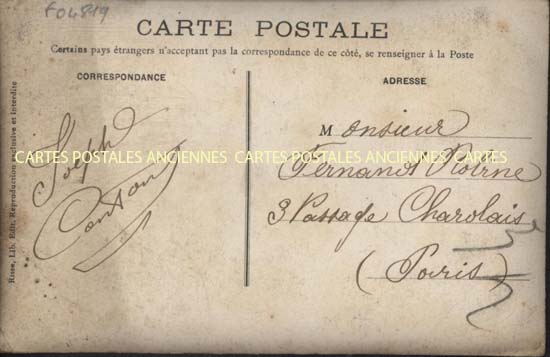 F04849
CARTE POSTALE
Certains pays étrangers n'acceptant pas la correspondance de ce côté, se renseigner à la Poste
CORRESPONDANCE
ADRESSE
Joseph
CARTES POSTALES ANCIENNES CARTES POSTALES ANCIENNES CARTES POSTALES ANCIENNES
Monsieur
Fernand
3 Passage Charolais
(Paris)
Lib. Edit. Reproduction exclusive et interdite